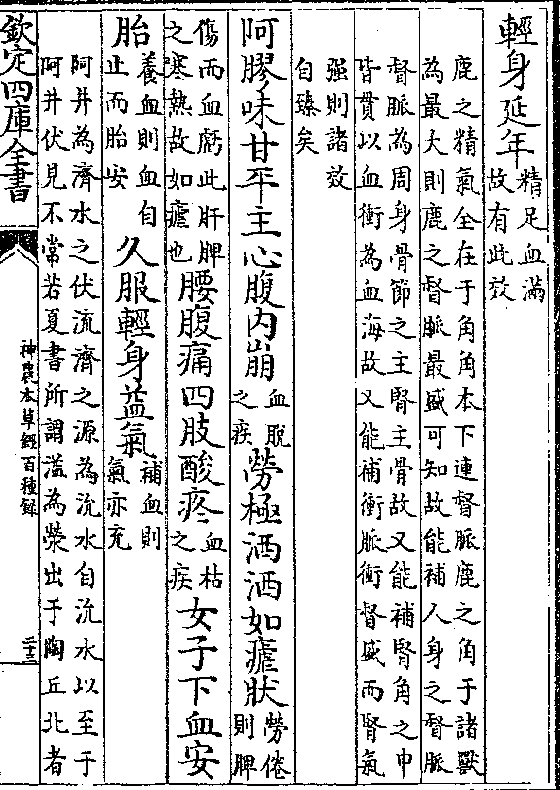 輕身延年精足血滿故有此效
鹿之精氣全在于角角本下連督脈鹿之角于諸獸
為最大則鹿之督脈最盛可知故能補人身之督脈
督脈為周身骨節之主腎主骨故又能補腎角之中
皆貫以血衝為血海故又能補衝脈衝督盛而腎氣
强則諸效自臻矣
阿膠味甘平主心腹内崩血脫之疾勞極洒洒如瘧狀勞倦則脾
傷而血虧此肝脾之寒熱故如瘧也腰腹痛四肢酸疼血枯之疾女子下血安
胎養血則血自止而胎安久服輕身益氣補血則氣亦充
阿井為濟水之伏流濟之源為沇水自沇水以至于
阿井伏見不常若夏書所謂溢為滎出于陶丘北者
欽定四庫全書
神農本草經百種錄
二十三